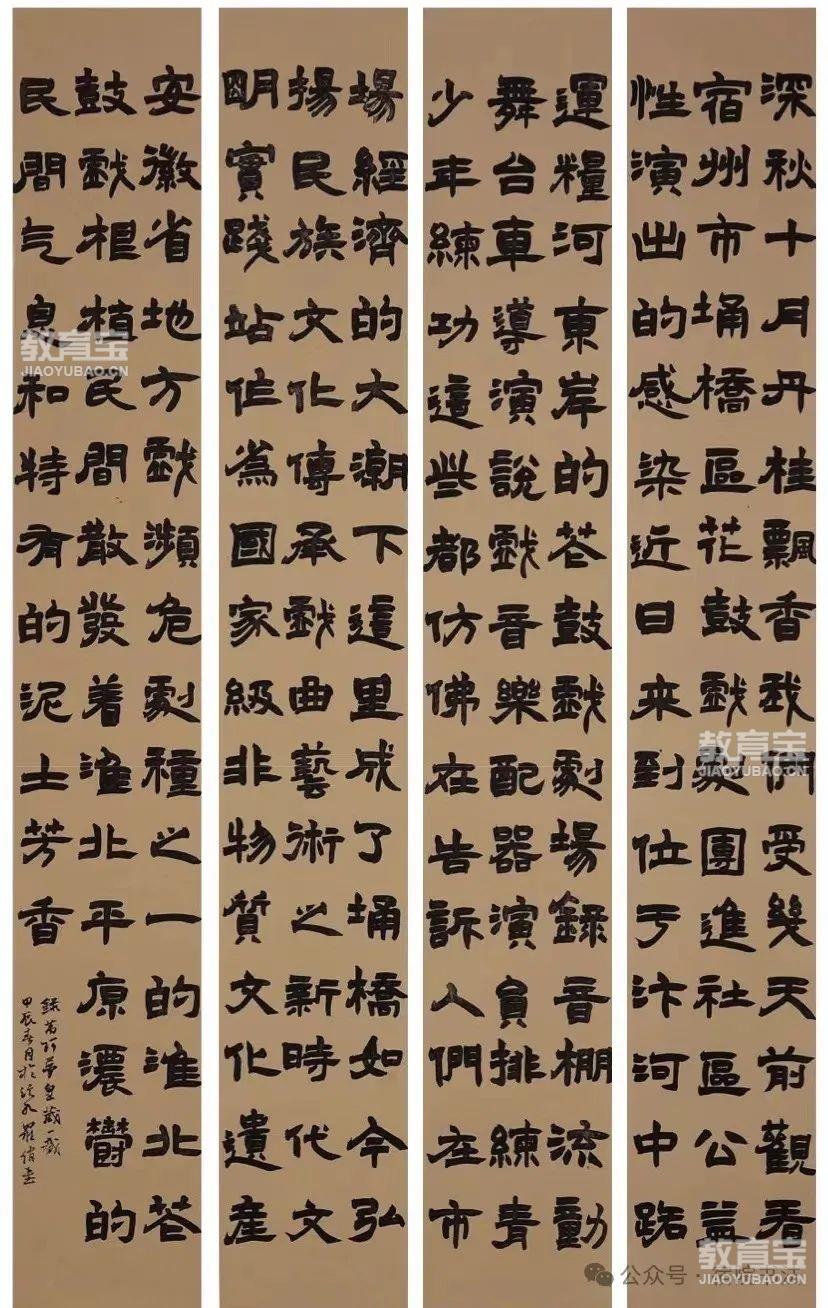 深秋十月丹桂飄香我們受幾天前觀看
宿州市埇橋區花鼓戲劇團進社區公益
性演出的感染近日來到位于汴河中路
運糧河東岸的花鼓戲劇場錄音棚流動
舞台車導演說戲音樂配器演員排練青
少年練功這些都仿佛在告訴人們在市
場經濟的大潮下這里成了埇橋如今弘
揚民族文化傳承戲曲藝術之新時代文
明實踐站作為國家級非物質文化遺產
安徽省地方戲瀕危劇種之一的淮北花
鼓戲根植民間散發着淮北平原濃鬱的
民間气息和特有的泥土芳香
甲辰春月於
教育宝
JIAOYUBAO.CN
教育宝
JIAOYUBAO.CN
教育宝
JIAOYUBAO.CN
公众号 ·